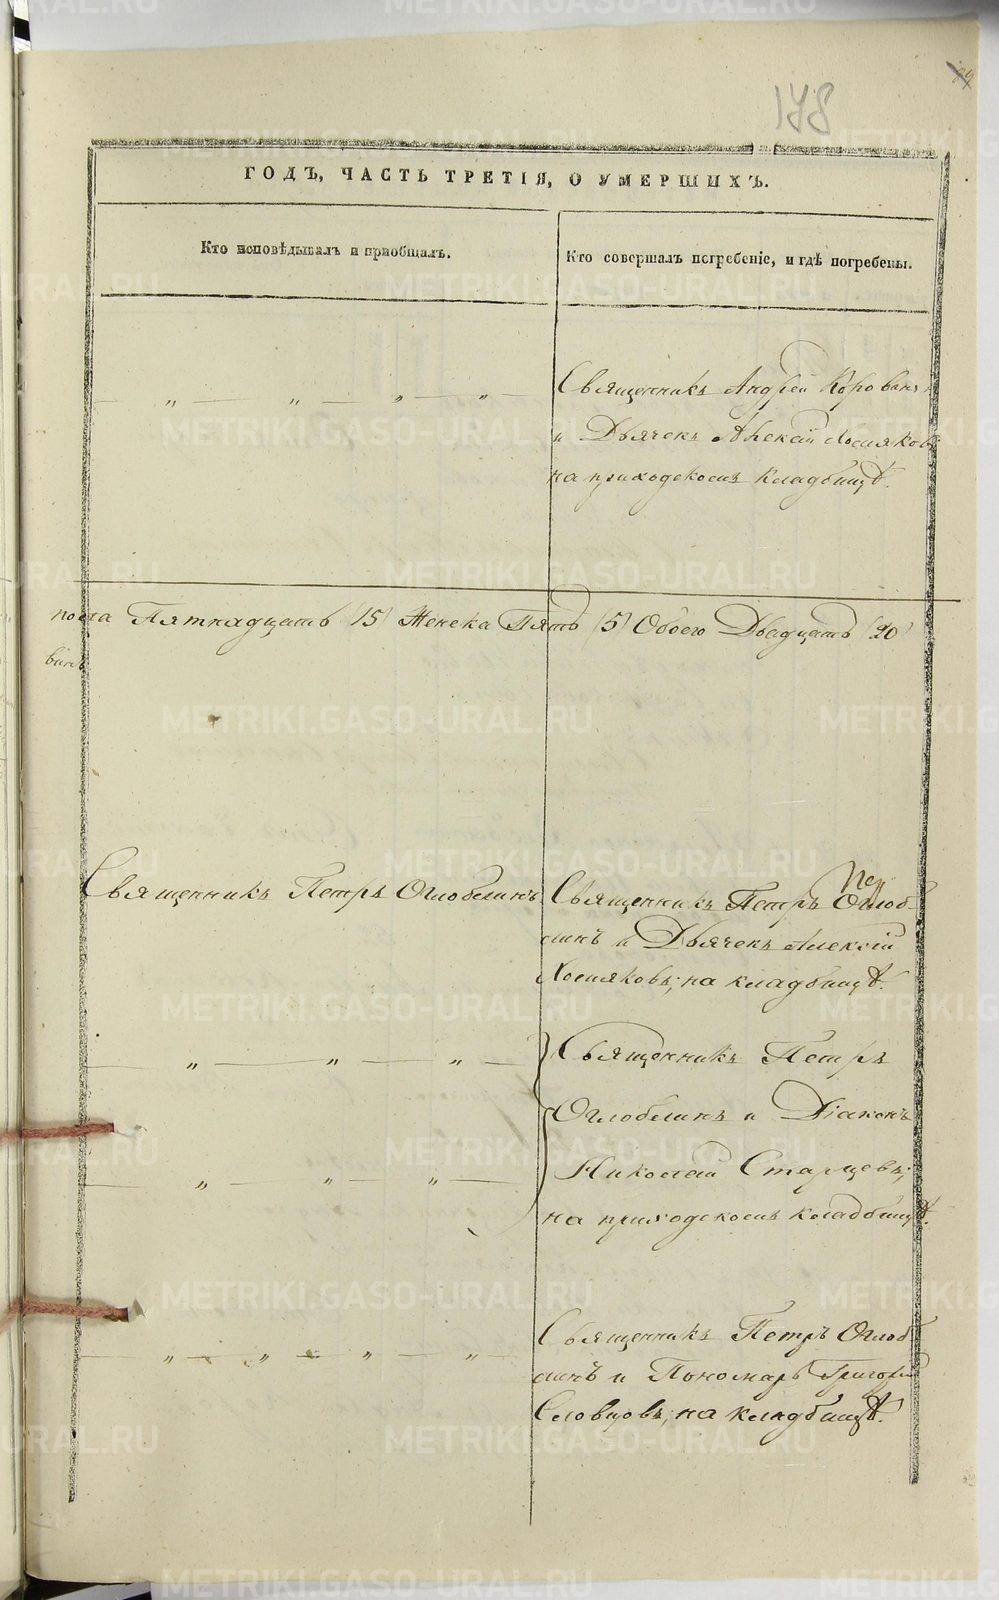 178
ГОДЪ, ЧАСТЬ ТРЕТІЯ, О УМЕРШИХЪ.
Кто исповѣдывалъ и пріобщалъ.
Кто совершалъ погребеніе, и гдѣ погребены.
Священникъ Андрей Корован
и Дьячекъ Алексій Хомяковъ
на приходскомъ кладбищѣ.
пола Пятнадцать (15) Женска Пять (5) Обоего Двадцать (20)
Священникъ Петръ Оглоблинъ
Священникъ Петръ Оглоб-
линъ и Дьячекъ Алексій
Хомяковъ; на кладбищѣ.
Священникъ Петръ
Оглоблинъ и Діаконъ
Николай Старцевъ;
на приходскомъ кладбищѣ.
Священникъ Петръ Оглоб
линъ и Пономарь Григорій
Словцовъ; на кладбищѣ.
METRIKI.GASO-URAL.RU